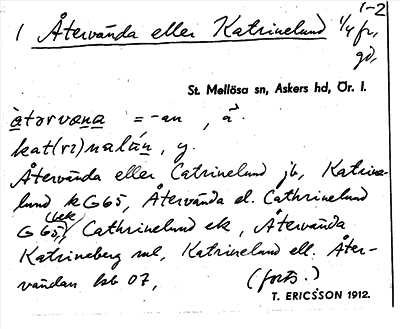 1 Återvända eller Katrinelund 1/4 fr,
1-2
gd,
St. Mellösa sn, Askers hd, Ör. l.
àtərvæna = -an , å
kat(ri)nalún, y.
Återvända eller Catrinelund jb, Katrine-
lund k G65, Återvända el. Cathrinelund
G 65, (bek) Cathrinelund ek, Återvända
Katrineberg ml, Katrinelund ell. Åter-
vändan lsb 07, (forts.)
T. ERICSSON 1912.